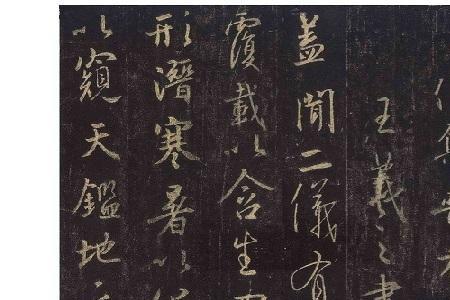 集晉
王羲之書
蓋聞二儀有
覆載以含生
形潛寒暑以
以窺天鑑地